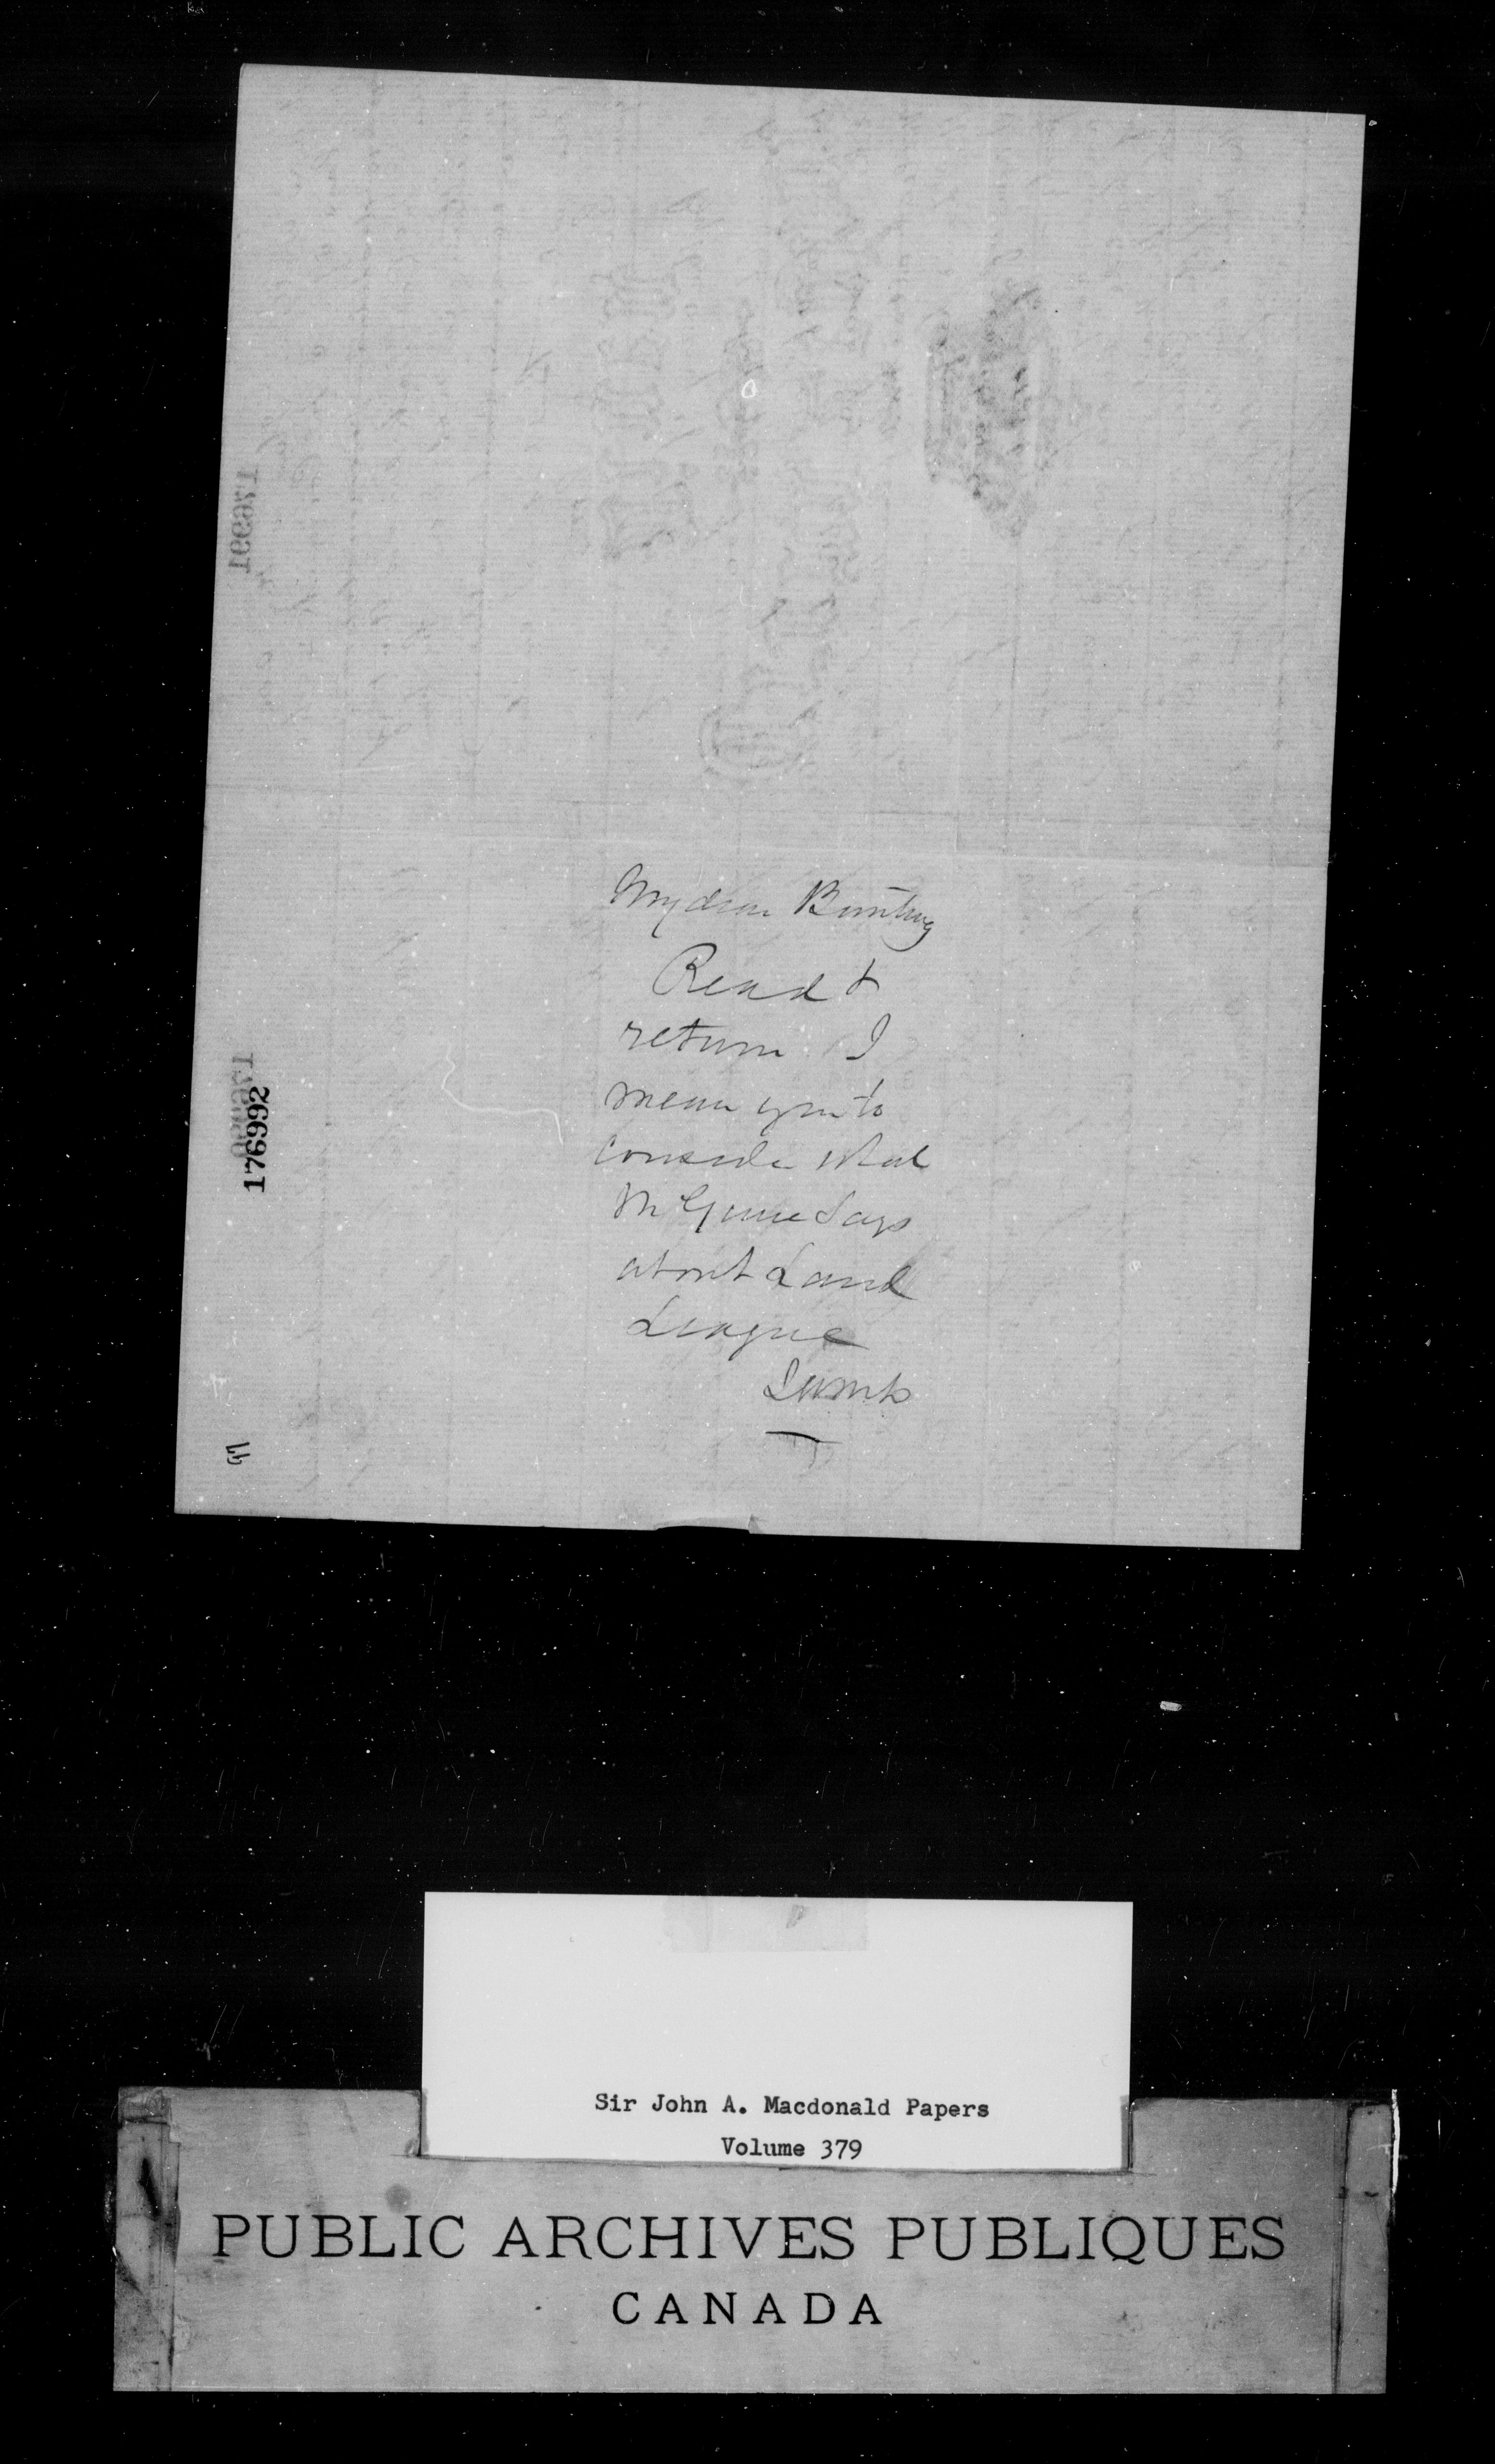 My dear Bunting
Read &
return. I
mean you to
consider what
says
about Land
League
176992
176991
Sir John A. Macdonald Papers
Volume 379
PUBLIC ARCHIVES PUBLIQUES
CANADA